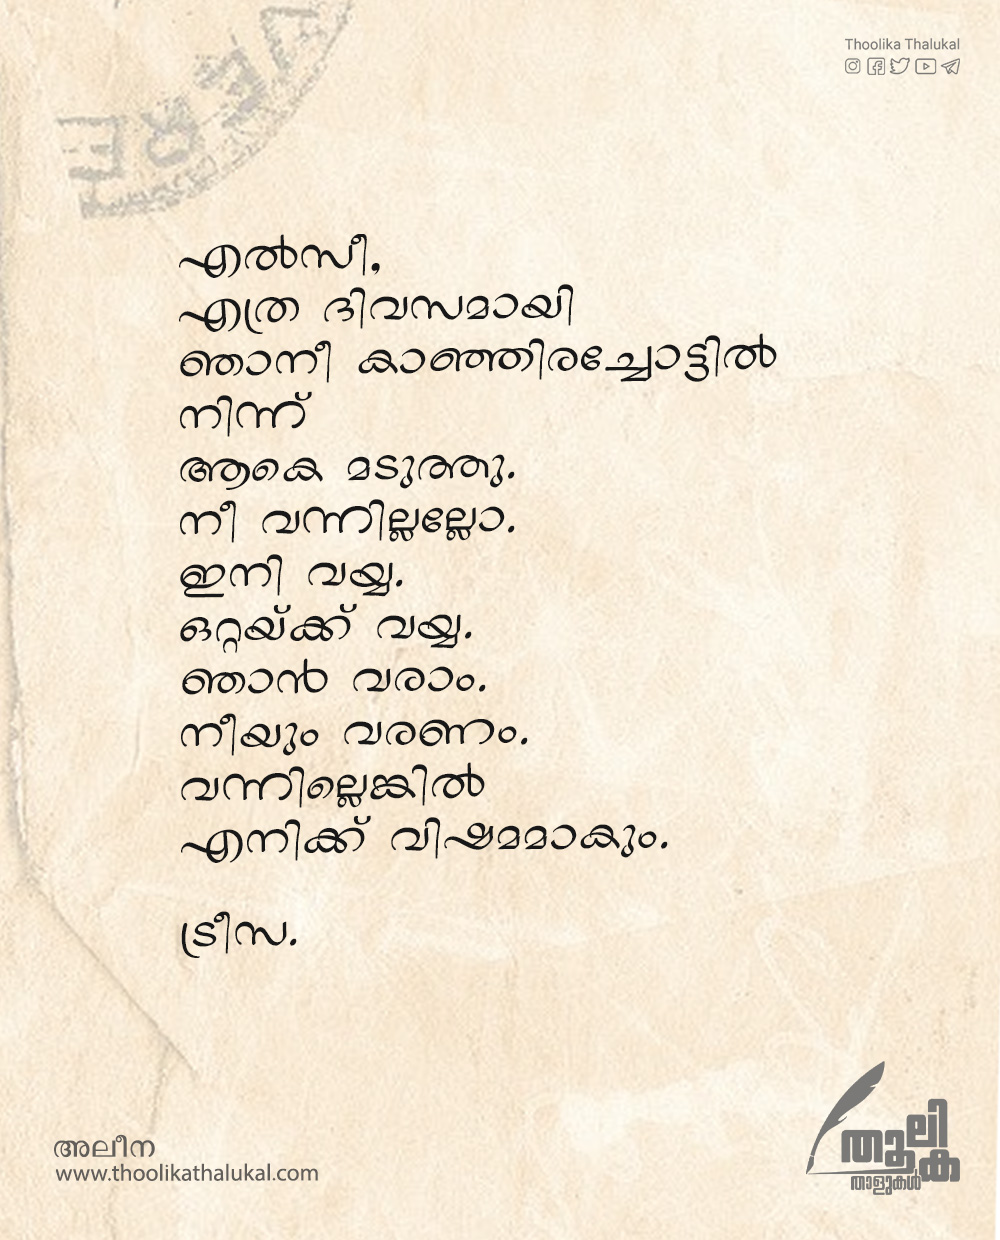 Thoolika Thalukal
എൽസീ,
എത്ര ദിവസമായി
ഞാനീ കാഞ്ഞിരച്ചോട്ടിൽ
നിന്ന്
ആകെ മടുത്തു.
നീ വന്നില്ലല്ലോ.
ഇനി വയ്യ.
ഒറ്റയ്ക്ക് വയ്യ.
ഞാൻ വരാം.
നീയും വരണം.
വന്നില്ലെങ്കിൽ
എനിക്ക് വിഷമമാകും.
ട്രീസ.
അലീന
www.thoolikathalukal.com
തൂലിക
താളുകൾ